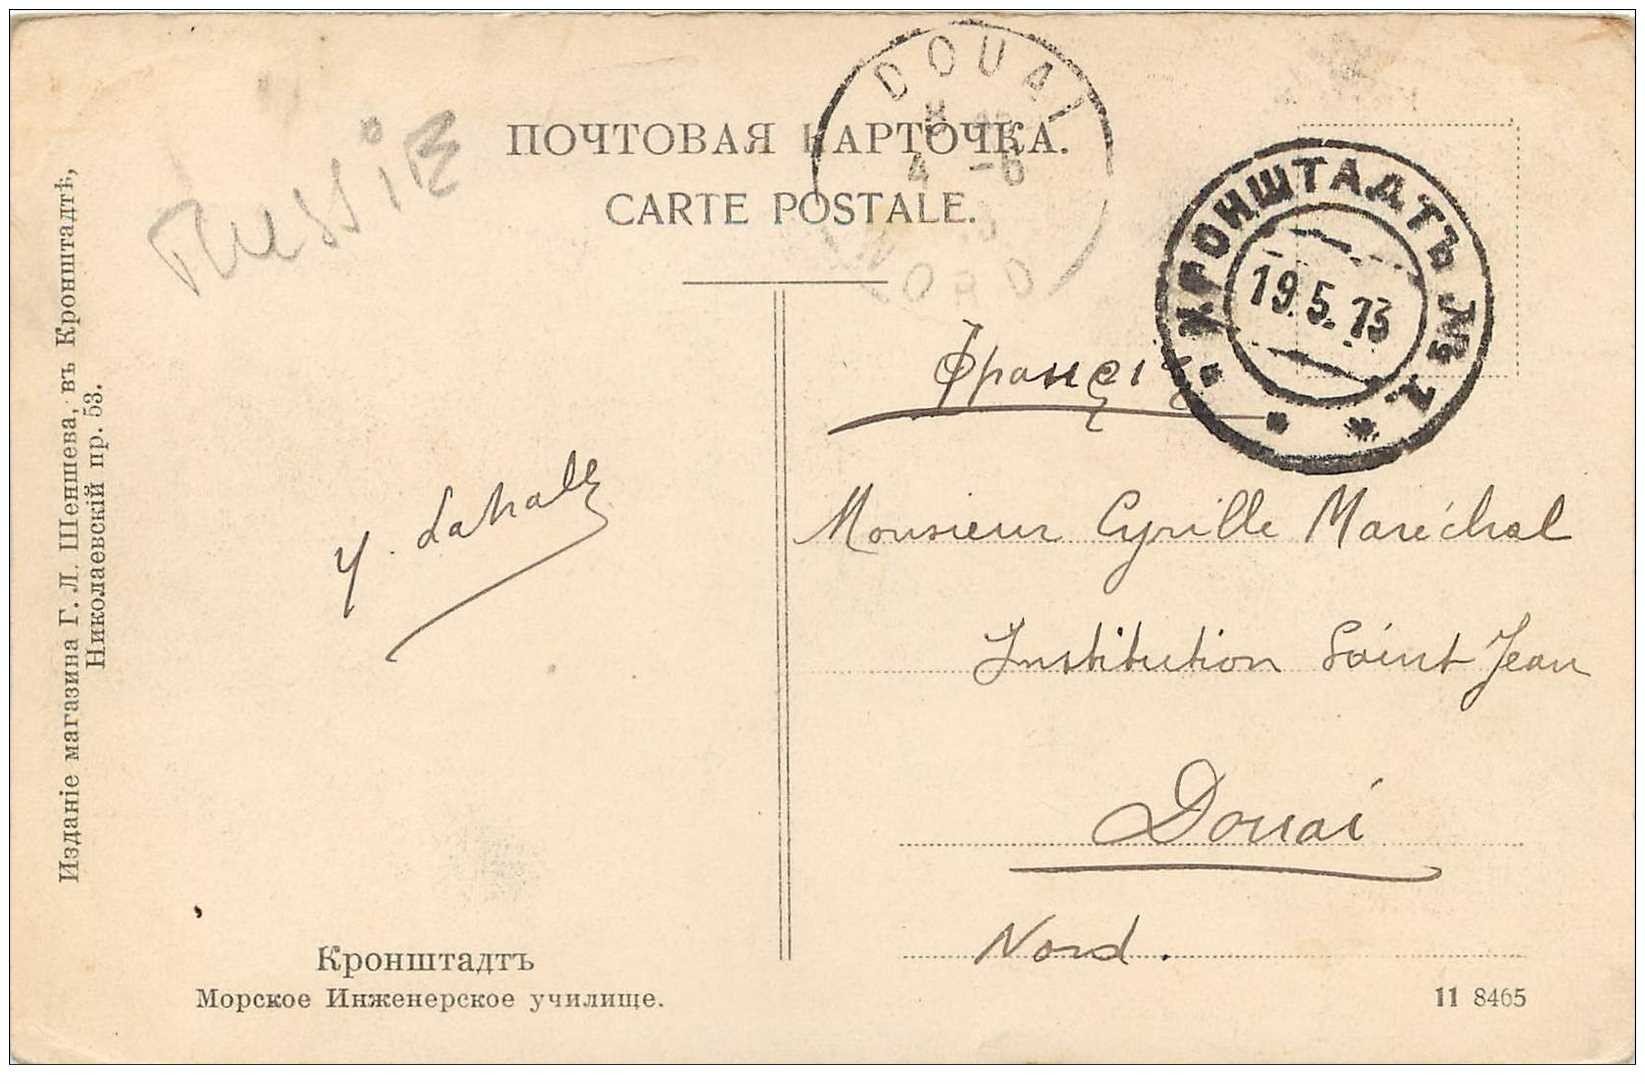 ПОЧТОВАЯ КАРТОЧКА.
CARTE POSTALE.
Russie
DOUAI
4 -6
NORD
КРОНШТАДТЪ № 1
19.5.13
Monsieur Cyrille Maréchal
Institution Saint Jean
Douai
Nord.
Изданіе магазина Г. Л. Шеншева, въ Кронштадтѣ,
Николаевскій пр. 53.
Кронштадтъ
Морское Инженерское училище.
11 8465